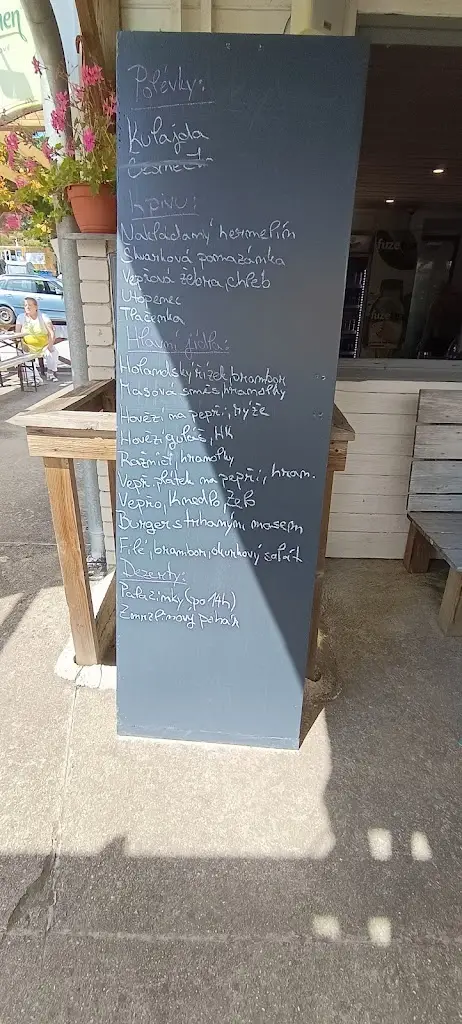 Polévky:
Kulajda
Česneč
K pivu:
Nakládaný hermelín
Škvarková pomazánka
Vepřová žebra, chleb
Utopenec
Tlačenka
Hlavní jídla:
Holandský řízek, brambor
Masová směs, hranolky
Hovězí na pepři, rýže
Hovězí guláš, HK
Ražniči, hranolky
Vepř. plátek na pepři, hran.
Vepřo, Knedlo, Zelo
Burger s trhaným masem
Filé, brambor, okurkový salát
Dezerty:
Palačinky (po 14h)
Zmrzlinový pohár
fuze
fuze